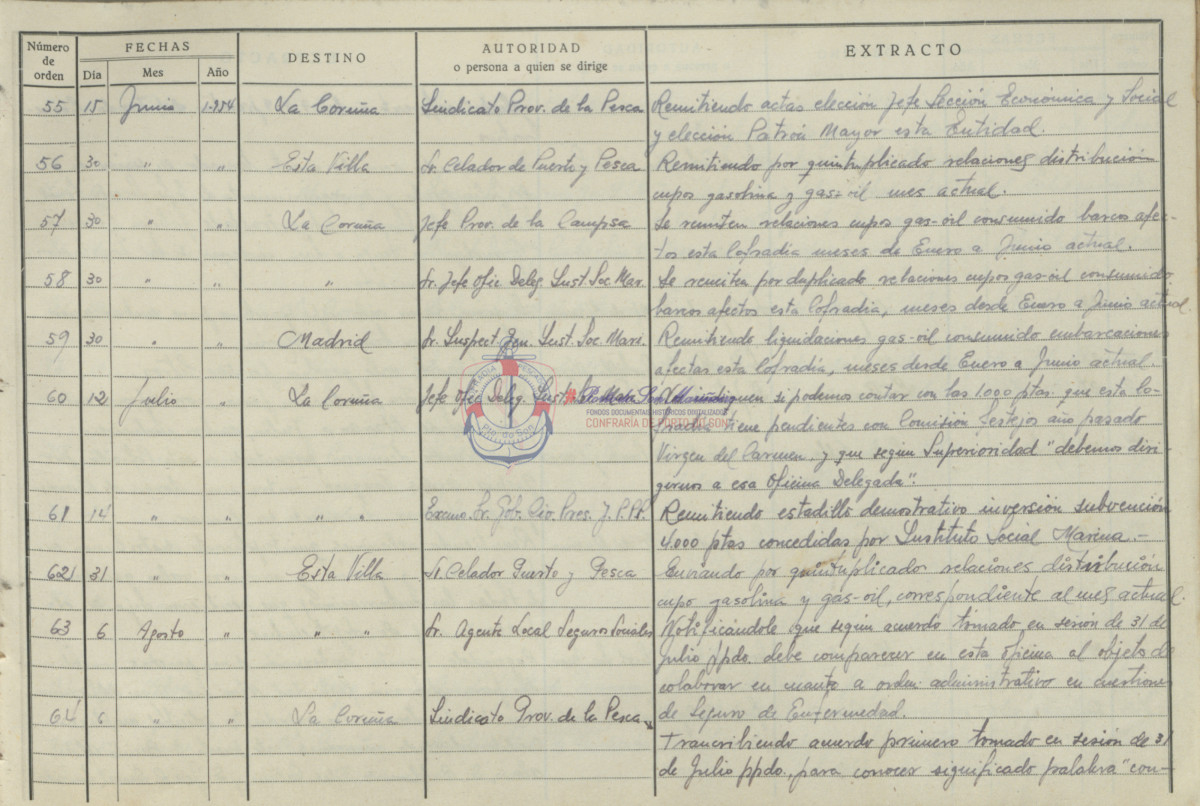 Número de orden FECHAS DESTINO AUTORIDAD o persona a quien se dirige EXTRACTO
Dia Mes Año
55 15 Junio 1.954 La Coruña Sindicato Prov. de la Pesca Remitiendo actas elección Jefe Sección Económica y Social
y elección Patrón Mayor esta Entidad.
56 30 " " Esta Villa Sr. Celador de Puerto y Pesca Remitiendo por quintuplicado relaciones distribución
cupos gasolina y gas-oil mes actual.
57 30 " " La Coruña Jefe Prov. de la Campsa Se remiten relaciones cupos gas-oil consumido barcos afec-
tos esta Cofradia meses de Enero a Junio actual.
58 30 " " " Sr. Jefe Ofic. Deleg. Inst. Soc. Mar. Se remiten por duplicado relaciones cupos gas-oil consumido
barcos afectos esta Cofradia, meses desde Enero a Junio actual.
59 30 " " Madrid Sr. Inspect. Gen. Inst. Soc. Mari. Remitiendo liquidaciones gas-oil consumido embarcaciones
afectas esta Cofradia, meses desde Enero a Junio actual.
60 12 Julio " La Coruña Jefe Ofic. Deleg. Inst. si podemos contar con las 1.000 ptas. que esta Co-
fradia tiene pendientes con Comisión Festejos año pasado
Virgen del Carmen y que segun Superioridad "debemos diri-
girnos a esa Oficina Delegada".
FONDOS DOCUMENTAIS HISTÓRICOS DIXITALIZADOS
CONFRARÍA DE PORTO DO SON
Pto. do Son
61 14 " " " " Excmo. Sr. Gob. Civ. Pres. J. P. PP. Remitiendo estadillo demostrativo inversión subvención
4.000 ptas concedidas por Instituto Social Marina.-
62 31 " " Esta Villa Sr. Celador Puerto y Pesca Enviando por quintuplicado relaciones distribución
cupo gasolina y gas-oil, correspondiente al mes actual.
63 6 Agosto " " " Sr. Agente Local Seguros Sociales Notificándole que segun acuerdo tomado en sesión de 31 de
Julio ppdo. debe comparecer en esta oficina al objeto de
colaborar en cuanto a orden administrativo en cuestiones
de Seguro de Enfermedad.
64 6 " " La Coruña Sindicato Prov. de la Pesca
Trancribiendo acuerdo primero tomado en sesión de 31
de Julio ppdo., para conocer significado palabra "con-